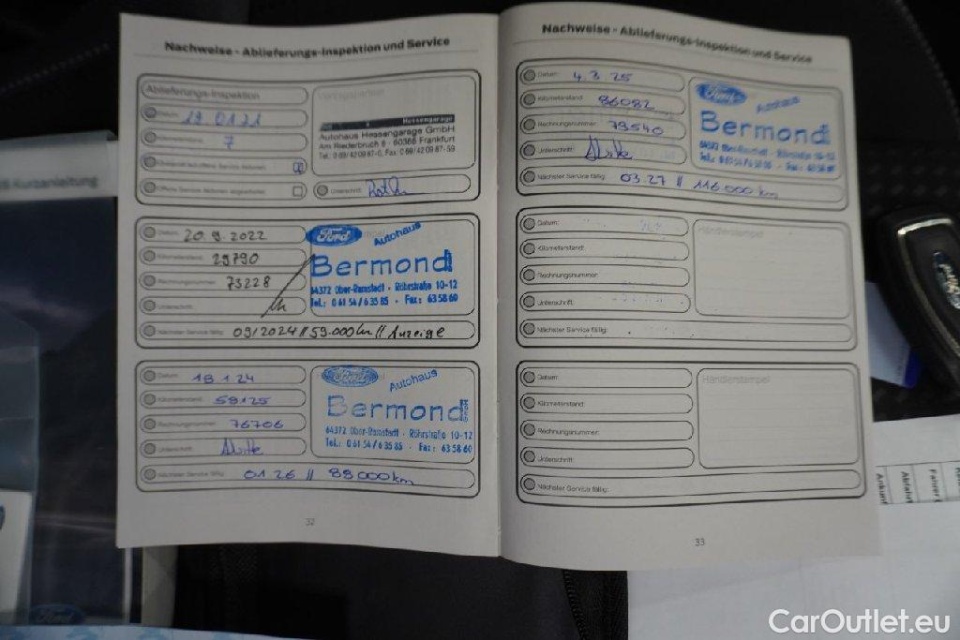 Nachweise - Ablieferungs-Inspektion und Service
Ablieferungs-Inspektion
Datum: 19.01.21
7
Unterschrift:
Hessengarage
Autohaus Hessengarage GmbH
Am Riederbruch 6 - 60386 Frankfurt
Datum: 20.9.2022
Kilometerstand: 29790
Rechnungsnummer: 73228
Unterschrift:
Nächster Service fällig: 09/2024 // 59.000 km // Anzeige
Ford Autohaus
Bermond GmbH
64372 Ober-Ramstadt - Röhrstraße 10-12
Tel.: 0 61 54 / 6 35 85 - Fax: 63 58 60
Datum: 18.1.24
Kilometerstand: 59125
Rechnungsnummer: 76706
Unterschrift:
Nächster Service fällig: 01.26 // 88000km
Ford Autohaus
Bermond GmbH
64372 Ober-Ramstadt - Röhrstraße 10-12
Tel.: 0 61 54 / 6 35 85 - Fax: 63 58 60
32
Nachweise - Ablieferungs-Inspektion und Service
Datum: 4.3.25
Kilometerstand: 86082
Rechnungsnummer: 79540
Unterschrift:
Nächster Service fällig: 03.27 // 116.000 km
Ford Autohaus
Bermond
64372 Ober-Ramstadt - Röhrstraße 10-12
Datum:
Kilometerstand:
Rechnungsnummer:
Unterschrift:
Nächster Service fällig:
Händlerstempel
Datum:
Kilometerstand:
Rechnungsnummer:
Unterschrift:
Nächster Service fällig:
Händlerstempel
33
Kurzanleitung
Ford
Ford
Ankunft
Abfahrt
Fahrer
CarOutlet.eu